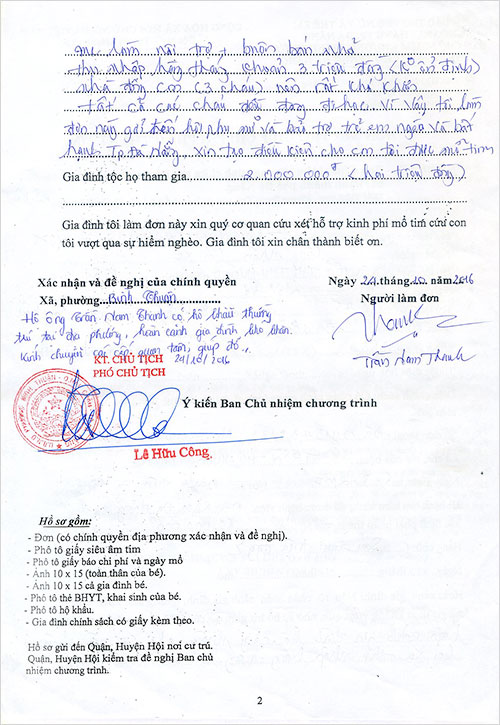 mẹ làm nội trợ + buôn bán nhỏ
thu nhập hằng tháng khoảng 3 triệu đồng (Kº ổn định)
nhà đông con (3 cháu) nên rất khó khăn
tất cả các cháu đều đang đi học. Vì vậy, tôi làm
đơn này gởi đến hội phụ nữ và bảo trợ trẻ em nghèo và bất
hạnh Tp Đà Nẵng, xin tạo điều kiện cho con tôi được mổ tim
Gia đình tộc họ tham gia..........2.000.000đ (hai triệu đồng)
Gia đình tôi làm đơn này xin quý cơ quan cứu xét hỗ trợ kinh phí mổ tim cứu con
tôi vượt qua sự hiểm nghèo. Gia đình tôi xin chân thành biết ơn.
Xác nhận và đề nghị của chính quyền
Ngày 24.tháng.10.năm 2016
Xã, phường.......Bình Thuận..........
Người làm đơn
Hộ ông Trần Nam Thanh có hộ khẩu thường
trú tại địa phương, hoàn cảnh gia đình khó khăn.
Kính chuyển các cấp quan tâm, giúp đỡ.
24/10/2016
Thanh
Trần Nam Thanh
KT. CHỦ TỊCH
PHÓ CHỦ TỊCH
Ý kiến Ban Chủ nhiệm chương trình
Lê Hữu Công
Hồ sơ gồm:
- Đơn (có chính quyền địa phương xác nhận và đề nghị).
- Phô tô giấy siêu âm tim
- Phô tô giấy báo chi phí và ngày mổ
- Ảnh 10 x 15 (toàn thân của bé).
- Ảnh 10 x 15 cả gia đình bé.
- Phô tô thẻ BHYT, khai sinh của bé.
- Phô tô hộ khẩu.
- Gia đình chính sách có giấy kèm theo.
Hồ sơ gửi đến Quận, Huyện Hội nơi cư trú.
Quận, Huyện Hội kiểm tra đề nghị Ban chủ
nhiệm chương trình.
2